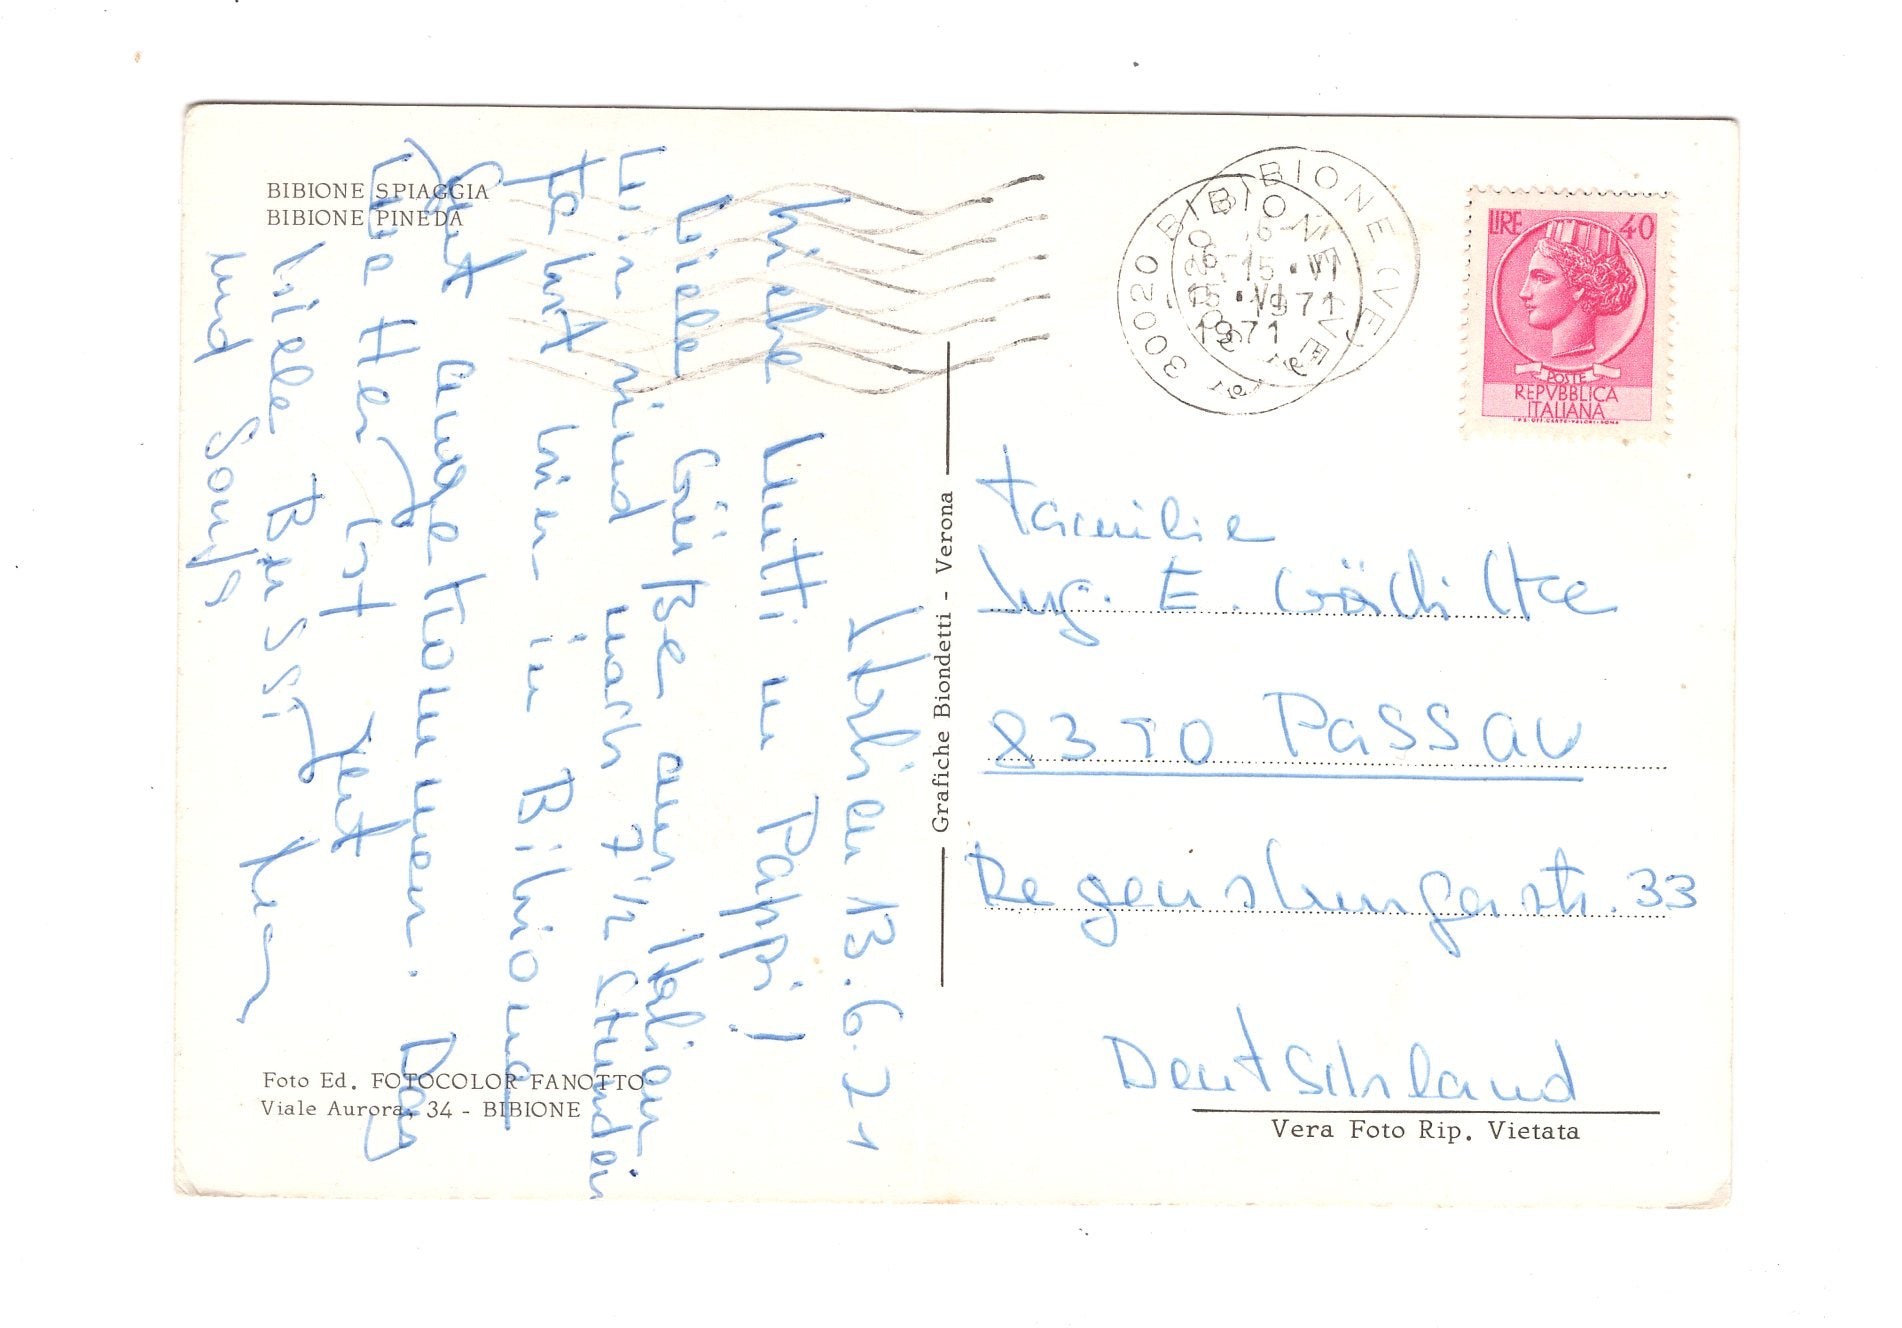 BIBIONE SPIAGGIA
BIBIONE PINEDA
Italien 13.6.71
Liebe Mutti u Pappi!
Viele Grüße aus Italien
Wir sind nach 7 1/2 Stunden
Fahrt hier in Bibione
gut angekommen. Das
ist
Viele Bussi
und
Foto Ed. FOTOCOLOR FANOTTO
Viale Aurora, 34 - BIBIONE
Grafiche Biondetti - Verona
30020 BIBIONE (VE)
15 • VI
1971
30020 BIBIONE (VE)
15 • VI
1971
LIRE 40
POSTE
REPVBBLICA
ITALIANA
I.P.S. OFF. CARTE-VALORI-ROMA
Familie
Ing. E.
8390 Passau
Regensburgerstr. 33
Deutschland
Vera Foto Rip. Vietata